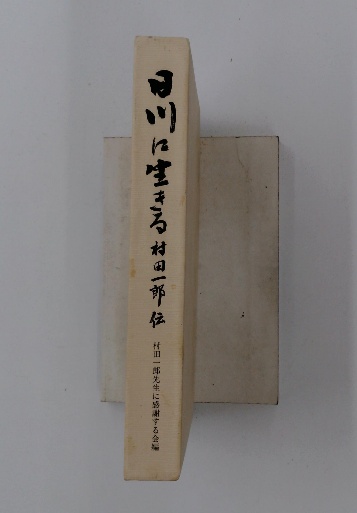 日川に生きる 村田一郎伝
村田一郎先生に感謝する会編